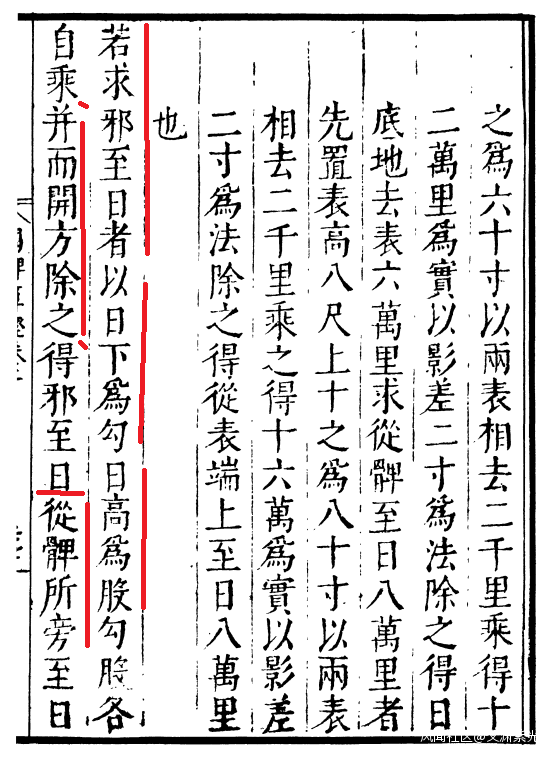 之爲六十寸以兩表相去二千里乘得十
二萬里爲實以影差二寸爲法除之得日
底地去表六萬里求從髀至日八萬里者
先置表高八尺上十之爲八十寸以兩表
相去二千里乘之得十六萬爲實以影差
二寸爲法除之得從表端上至日八萬里
也
若求邪至日者以日下爲勾日高爲股勾股各
自乘并而開方除之得邪至日從髀所旁至日